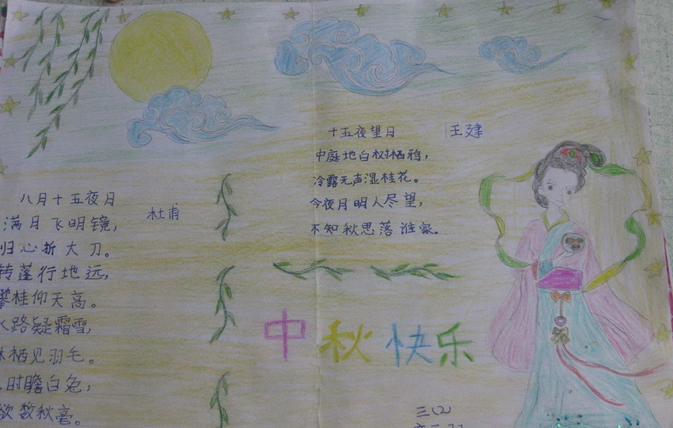 八月十五夜月
杜甫
满月飞明镜，
归心折大刀。
转蓬行地远，
攀桂仰天高。
水路疑霜雪，
林栖见羽毛。
时瞻白兔，
欲数秋毫。
十五夜望月
王建
中庭地白树栖鸦，
冷露无声湿桂花。
今夜月明人尽望，
不知秋思落谁家。
中秋快乐
三(2)